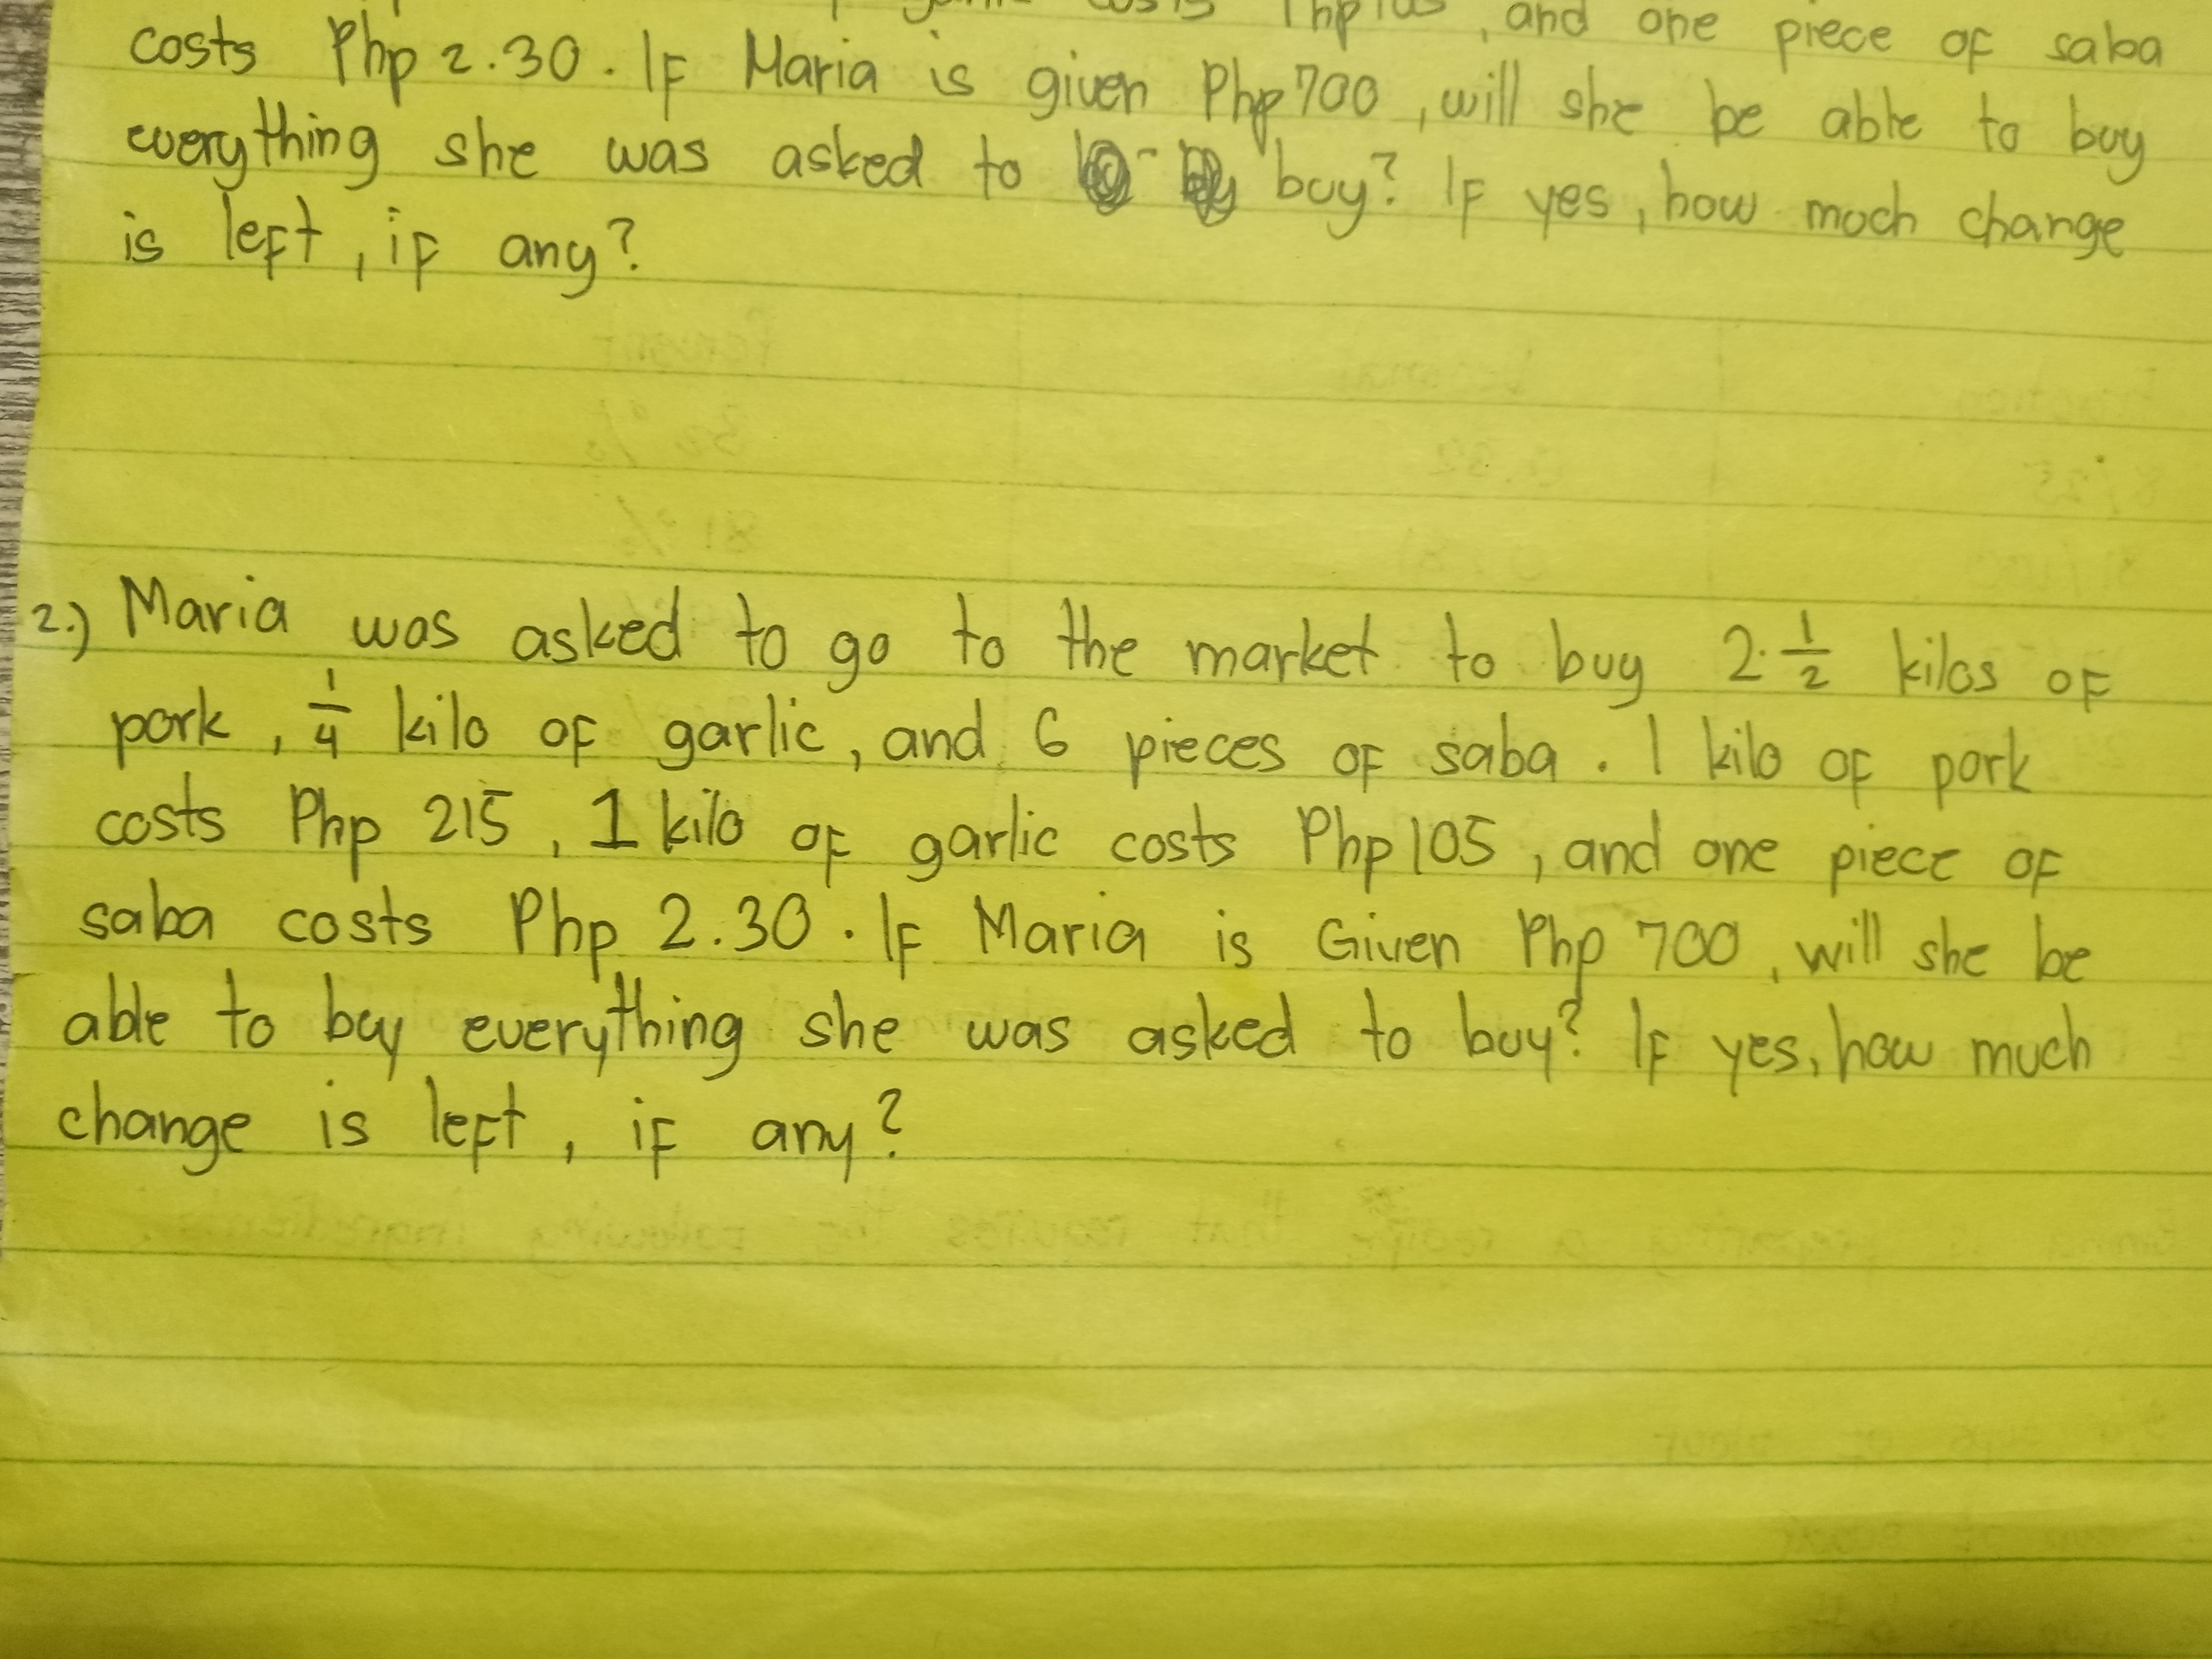 costs Php 105, and one piece of saba
costs Php 2.30. If Maria is given Php 700, will she be able to buy
everything she was asked to buy? If yes, how much change
is left, if any?
2.) Maria was asked to go to the market to buy 2 1/2 kilos of
pork, 1/4 kilo of garlic, and 6 pieces of saba. 1 kilo of pork
costs Php 215, 1 kilo of garlic costs Php 105, and one piece of
saba costs Php 2.30. If Maria is Given Php 700, will she be
able to buy everything she was asked to buy? If yes, how much
change is left, if any?